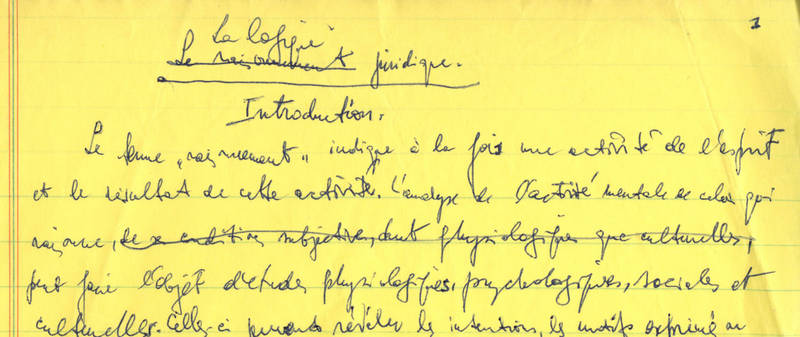 1
La logique
Le raisonnement juridique.
Introduction.
Le terme „raisonnement” indique à la fois une activité de l'esprit
et le résultat de cette activité. L'analyse de l'activité mentale de celui qui
raisonne, de ses conditions subjectives, tant physiologiques que culturelles,
peut faire l'objet d'études physiologiques, psychologiques, sociales et
culturelles. Celles-ci peuvent révéler les intentions, les motifs